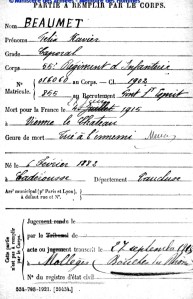 PARTIE À REMPLIR PAR LE CORPS.
Nom BEAUMET
Prénoms Félix Xavier
Grade Caporal
Corps 55e Régiment d'Infanterie
N° au Corps. — Cl. 1902
Matricule. 355 au Recrutement Pont St Esprit
Mort pour la France le 1915
à Vienne le Château
Genre de mort Tué à l'ennemi
Né le 6 Février 1882
à Caderousse Département Vaucluse
Arr municipal (p Paris et Lyon),
à défaut rue et N°.
Jugement rendu le
par le Tribunal de
acte ou jugement transcrit le 27 septembre
à Mollégès Bouches du Rhône
N° du registre d'état civil
534-708-1921. [26434.]